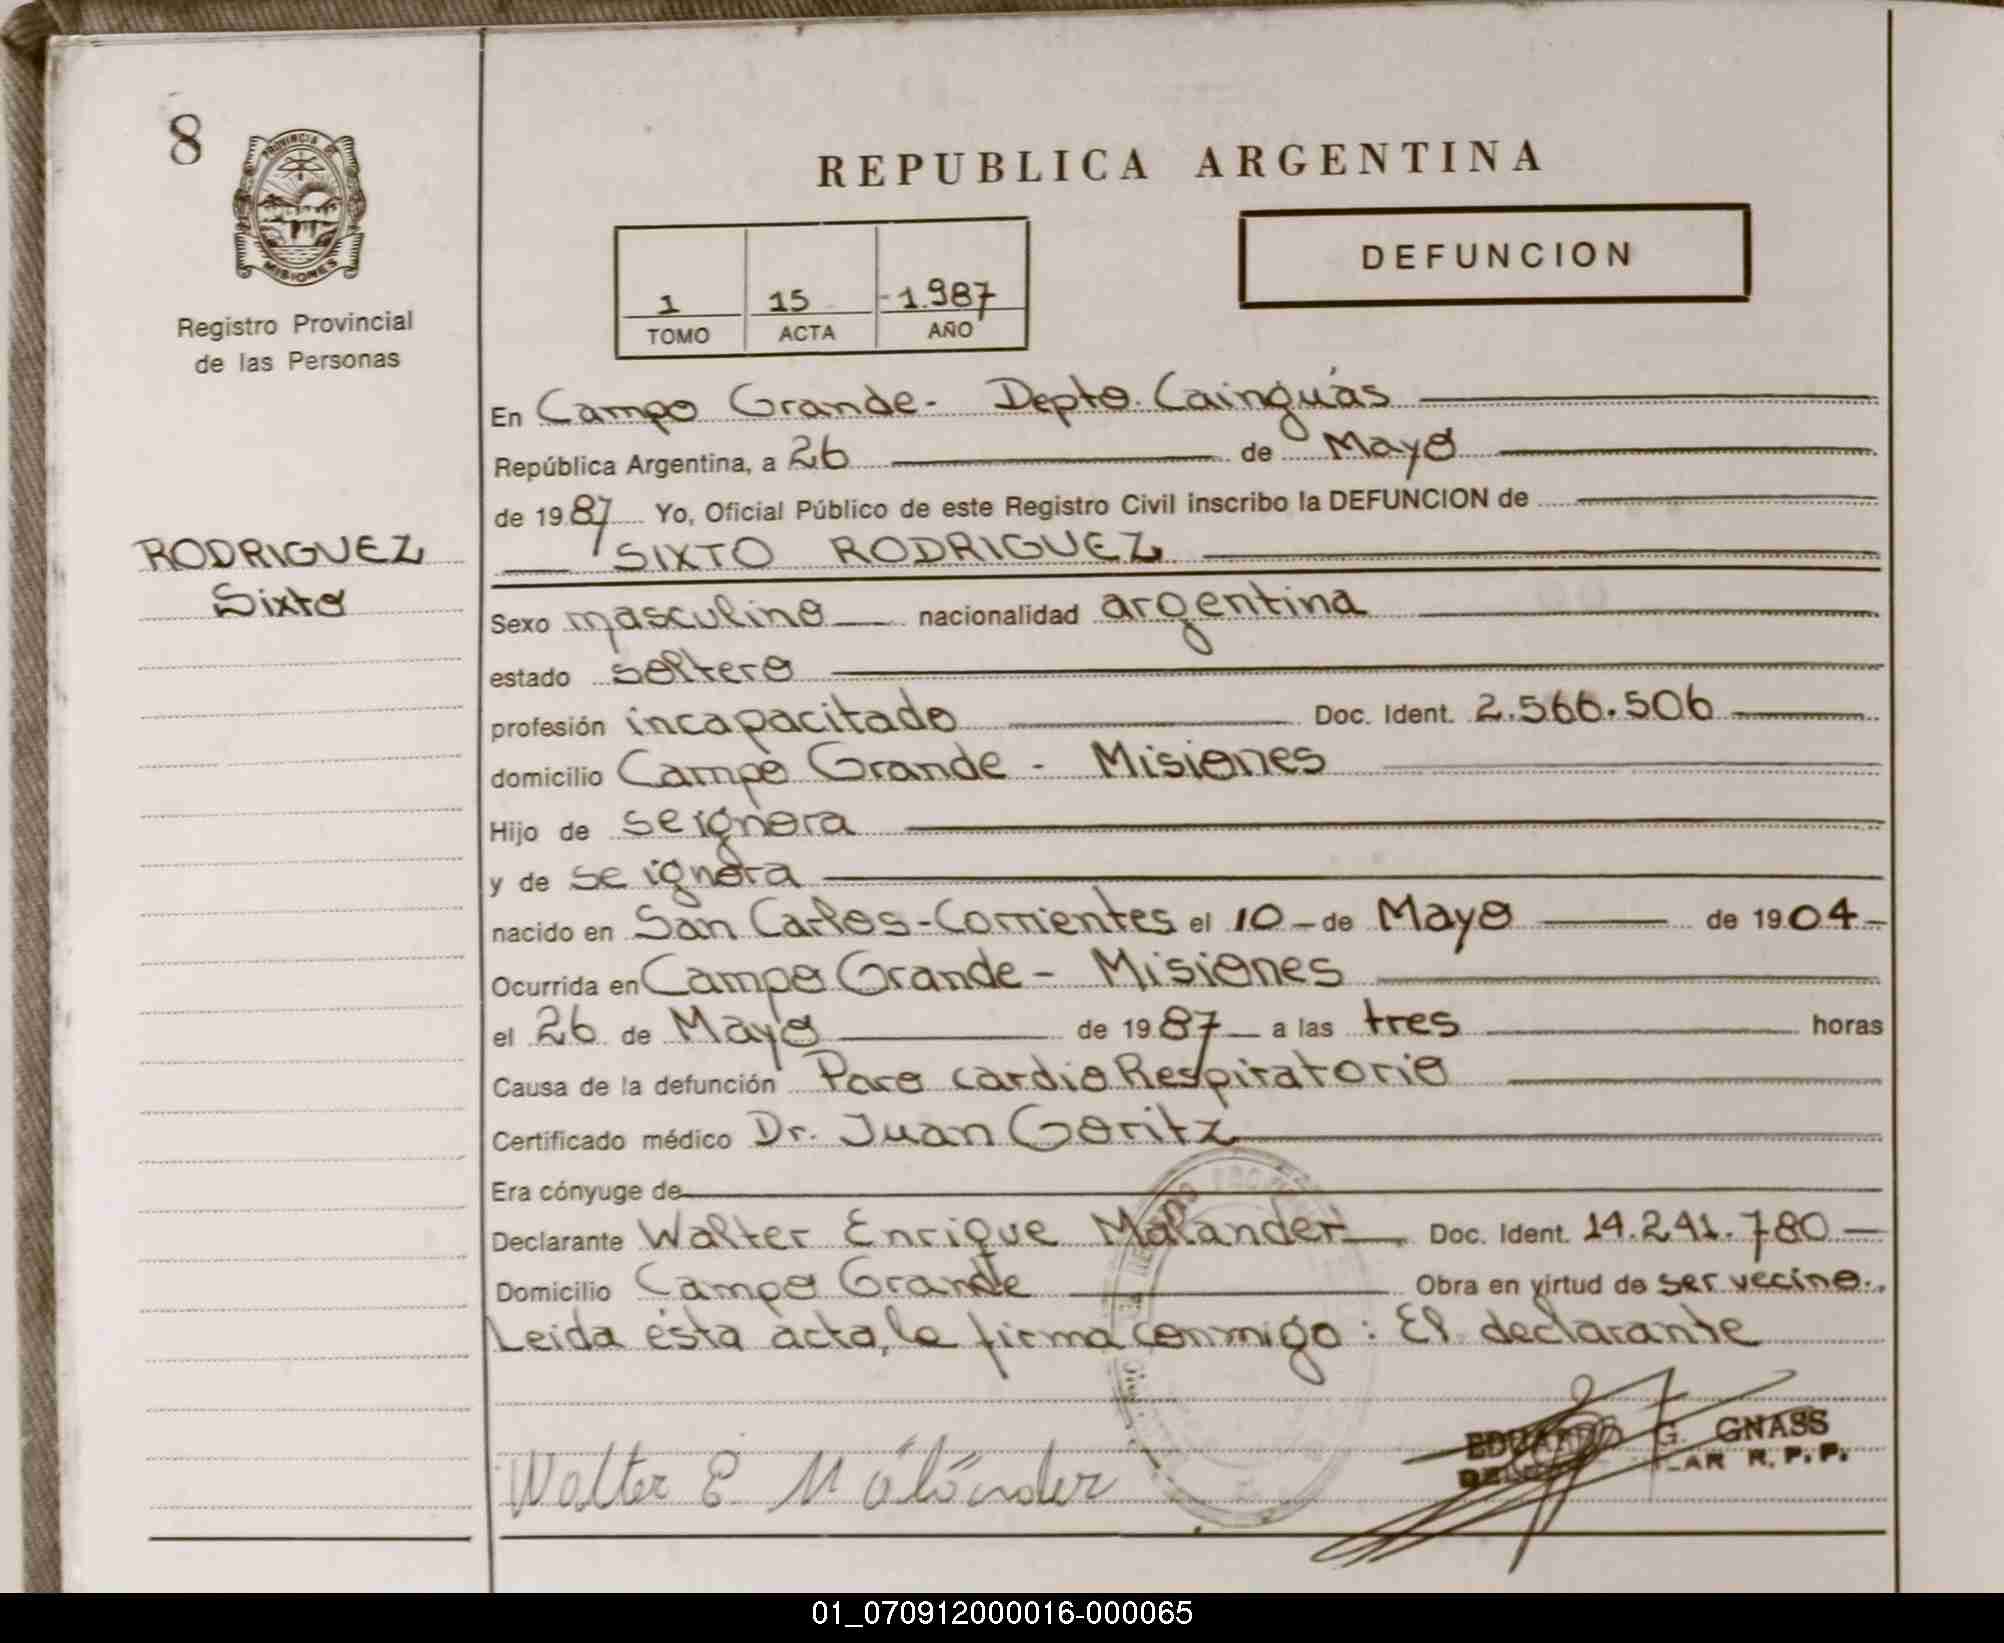 8
PROVINCIA DE
MISIONES
Registro Provincial
de las Personas
RODRIGUEZ
Sixto
REPUBLICA ARGENTINA
1 15 -1.987
TOMO ACTA AÑO
DEFUNCION
En Campo Grande- Depto. Cainguás
República Argentina, a 26 de Mayo
de 1987 Yo, Oficial Público de este Registro Civil inscribo la DEFUNCION de
SIXTO RODRIGUEZ
Sexo masculino nacionalidad argentina
estado soltero
profesión incapacitado Doc. Ident. 2.566.506
domicilio Campo Grande - Misiones
Hijo de se ignora
y de se ignora
nacido en San Carlos-Corrientes el 10 - de Mayo de 1904-
Ocurrida en Campo Grande - Misiones
el 26 de Mayo de 1987 a las tres horas
Causa de la defunción Paro cardio Respiratorio
Certificado médico Dr. Juan Goritz
Era cónyuge de
Declarante Walter Enrique Malander Doc. Ident. 14.241.780
Domicilio Campo Grande Obra en virtud de ser vecino.
Leida ésta acta, la firma conmigo: El declarante
Walter E Malander
EDUARDO G. GNASS
R.P.P.
01_070912000016-000065